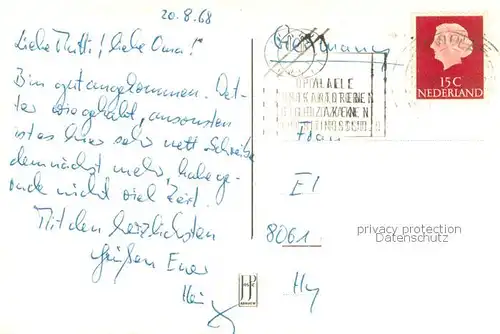 20.8.68
Liebe Mutti! liebe Oma!
Bin gut angekommen. Wet-
ter wie gehabt, ansonsten
ist es hier sehr nett. Schreibe
demnächst mehr, habe ge-
rade nicht viel Zeit.
Mit den herzlichsten
Grüßen Euer
Germany
15 C
NEDERLAND
OP ALLE
POSTKANTOREN
Frau
El
8061
privacy protection
Datenschutz